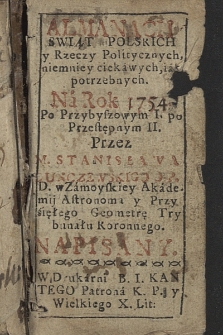 SWIĄT POLSKICH
y Rzeczy Politycznych,
niemniey ciekawych, iak
potrzebnych.
Na Rok 1754
Po Przybyszowym I. po
Przestępnym II.
Przez
M. STANISŁAWA
D. w Zamoyskiey Akade-
mij Astronoma y Przy
sięfego Geometrę Try
bunału Koronnego.
NAPISANY.
W Drukarni B. I. KAN
TEGO Patrona K. P. y
Wielkiego X. Lit: